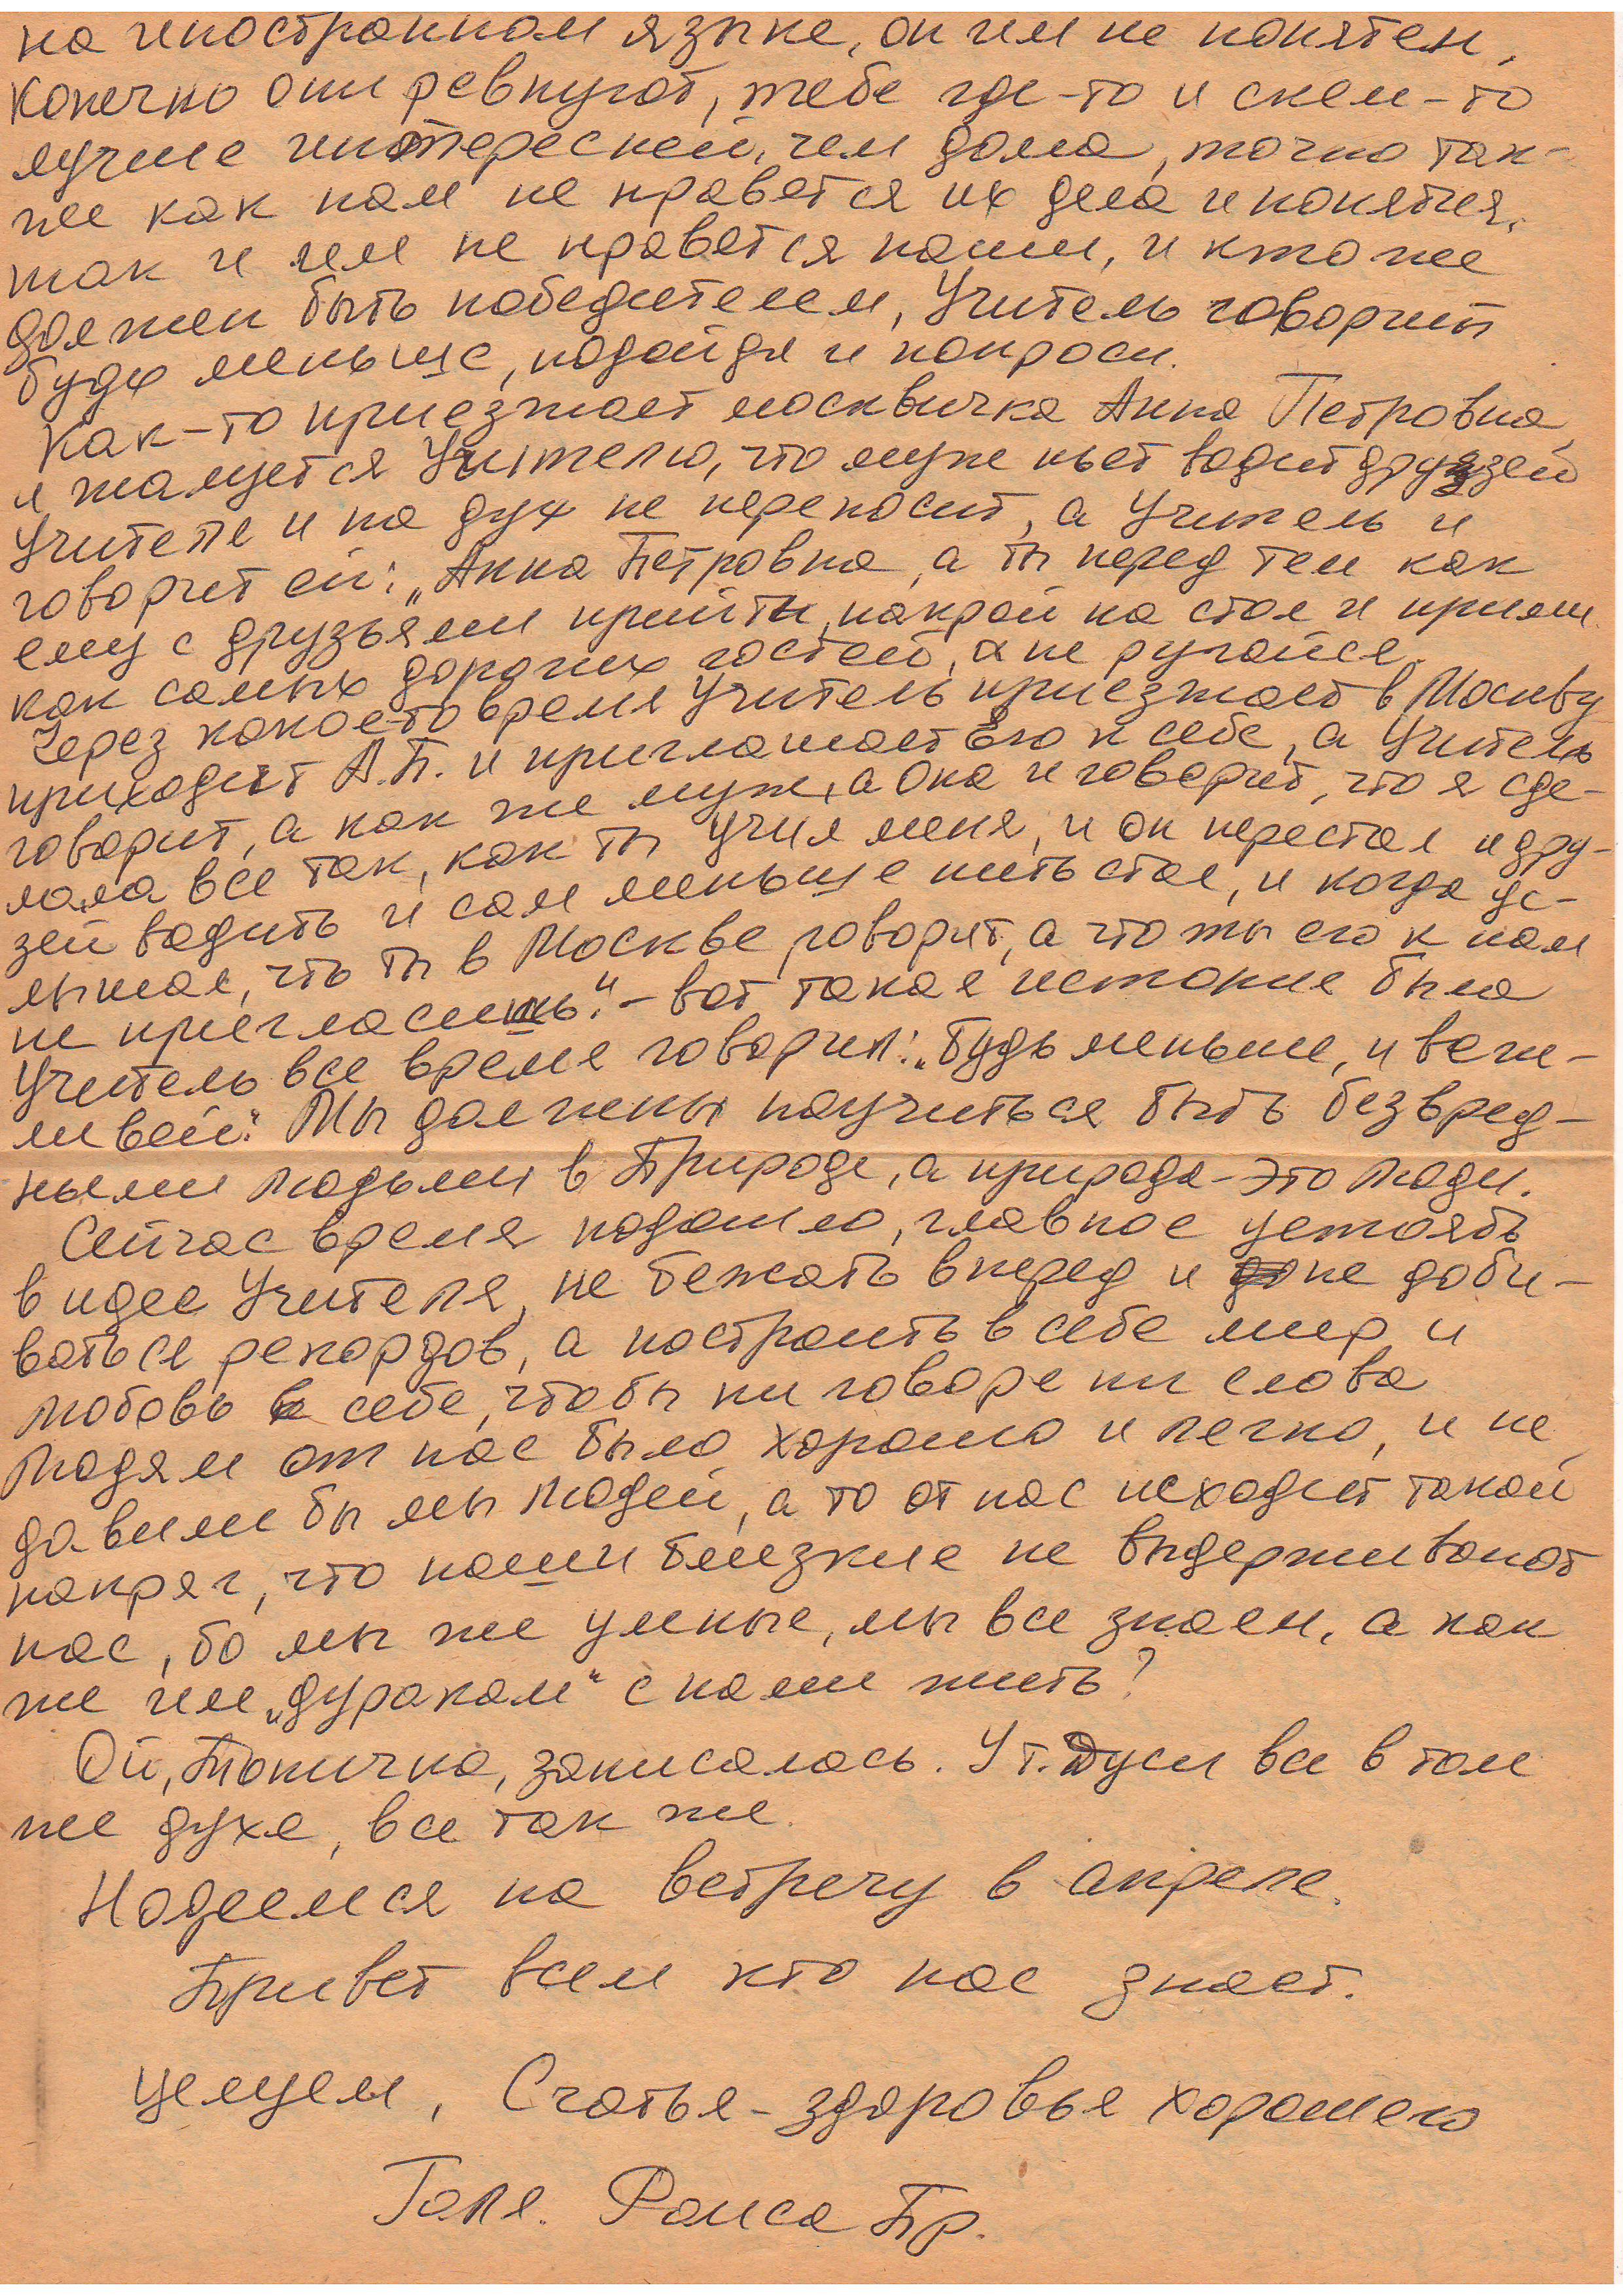 на иностранном языке, он им не понятен,
конечно они ревнуют, тебе где-то и с кем-то
лучше интересней, чем дома, точно так-
же как нам не нравятся их дела и понятия,
так и им не нравятся наши, и кто же
должен быть победителем, Учитель говорит
будь меньше, подойди и попроси.
Как-то приезжает москвичка Анна Петровна
и жалуется Учителю, что муж пьет водит друзей
Учителе и на дух не переносит, а Учитель и
говорит ей: „Анна Петровна, а ты перед тем как
ему с друзьями прийти, накрой на стол и прими
как самых дорогих гостей, а не ругайся.
Через какое-то время Учитель приезжает в Москву
приходит А.П. и приглашает Его к себе, а Учитель
говорит, а как же муж, а Она и говорит, что я сде-
лала все так, как ты учил меня, и он перестал и дру-
зей водить и сам меньше пить стал, и когда ус-
лышал, что ты в Москве, говорит, а что ты его к нам
не пригласишь." – вот такая история была
Учитель все время говорил: „Будь меньше, и веж-
ливей." Мы должны научиться быть безвред-
ными людьми в Природе, а природа – это люди.
Сейчас время подошло, главное устоять
в идее Учителя, не бежать вперед и не доби-
ваться рекордов, а построить в себе мир и
любовь в себе, чтобы ни говоре ни слова
людям от нас было хорошо и легко, и не
давили бы мы людей, а то от нас исходит такой
напряг, что наши близкие не выдерживают
нас, бо мы же умные, мы все знаем, а как
же им „дуракам" с нами жить?
Ой, Тонична, записалась. У т. Дуси все в том
же духе, все так же.
Надеемся на встречу в апреле.
Привет всем кто нас знает.
Целуем, Счастья – здоровья хорошего
Галя. Раиса Пр.